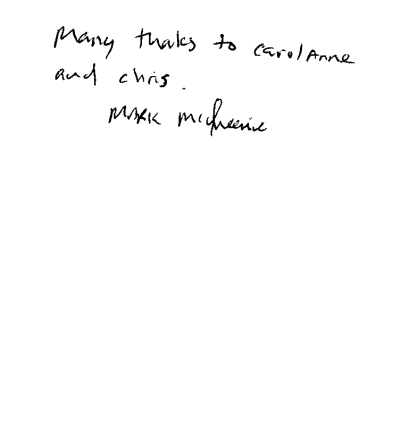 Many thaks to carolAnne
and chris.
Mark